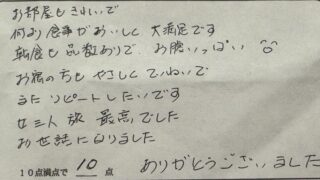 お部屋もきれいで
何より食事がおいしく大満足です
朝食も品数ありで、お腹いっぱい
お宿の方もやさしくていねいで
またリピートしたいです
女三人旅 最高でした
お世話になりました
10点満点で 10 点 ありがとうございました